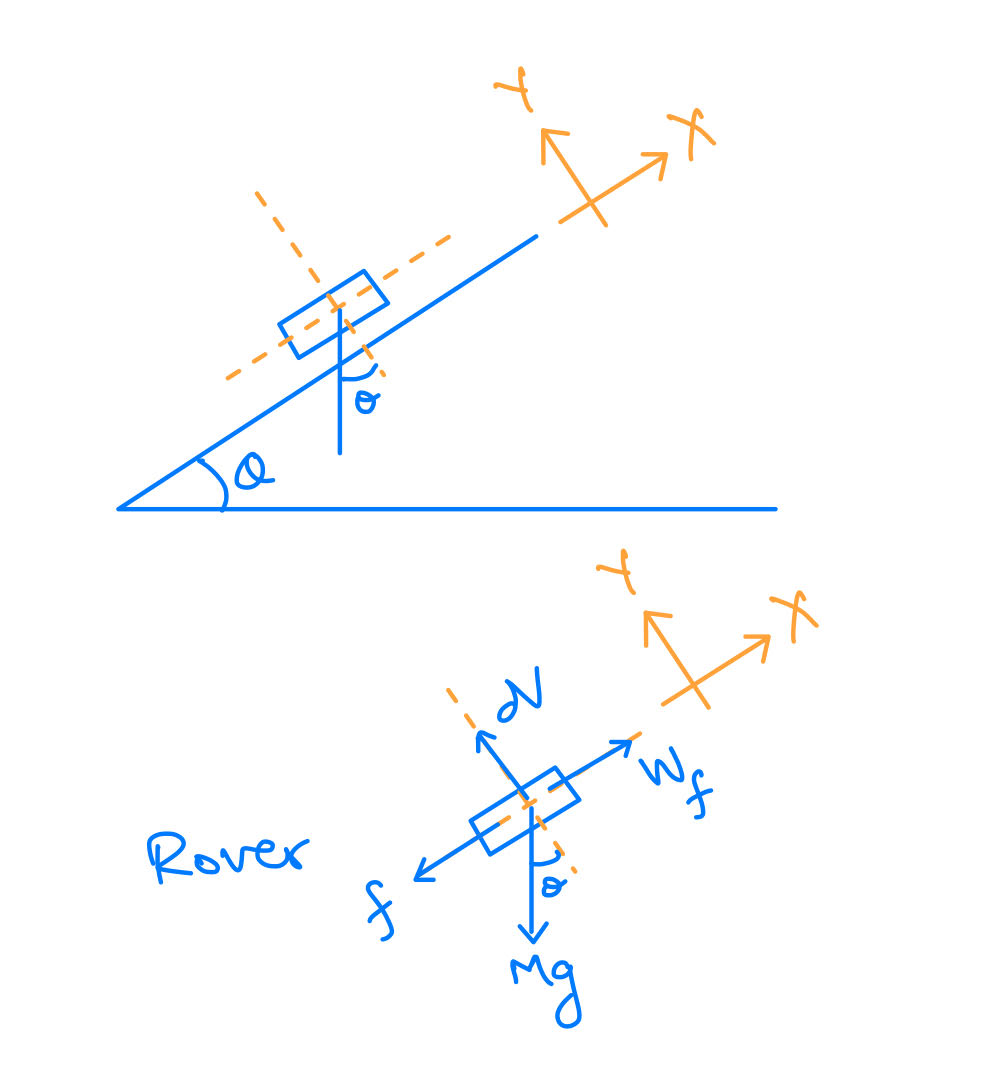 Y
X
θ
θ
Y
X
N
Wf
Rover
θ
f
Mg